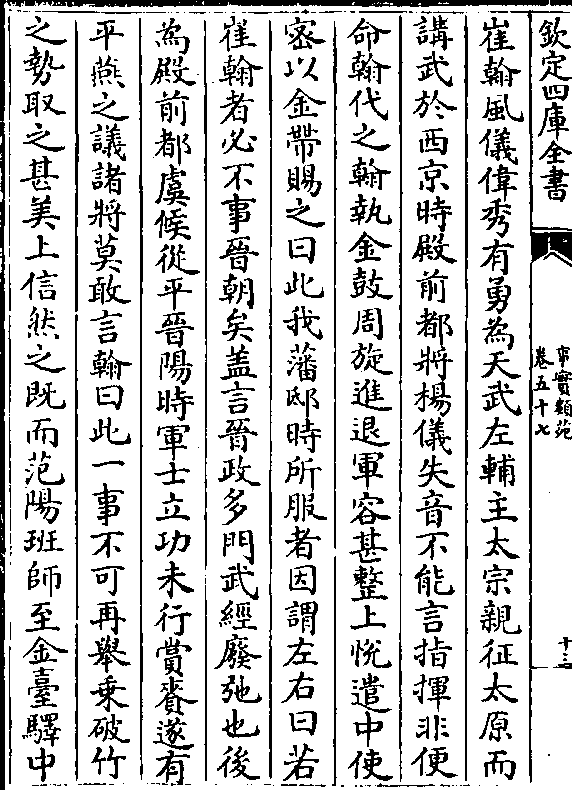 欽定四庫全書
事實類苑
卷五十七
十三
崔翰風儀偉秀有勇為天武左輔主太宗親征太原而
講武於西京時殿前都將楊儀失音不能言指揮非便
命翰代之翰執金鼓周旋進退軍容甚整上悅遣中使
密以金帶賜之曰此我藩邸時所服者因謂左右曰若
崔翰者必不事晉朝矣盖言晉政多門武經廢弛也後
為殿前都虞候從平晉陽時軍士立功未行賞賚遂有
平燕之議諸將莫敢言翰曰此一事不可再舉乗破竹
之勢取之甚美上信然之既而范陽班師至金臺驛中